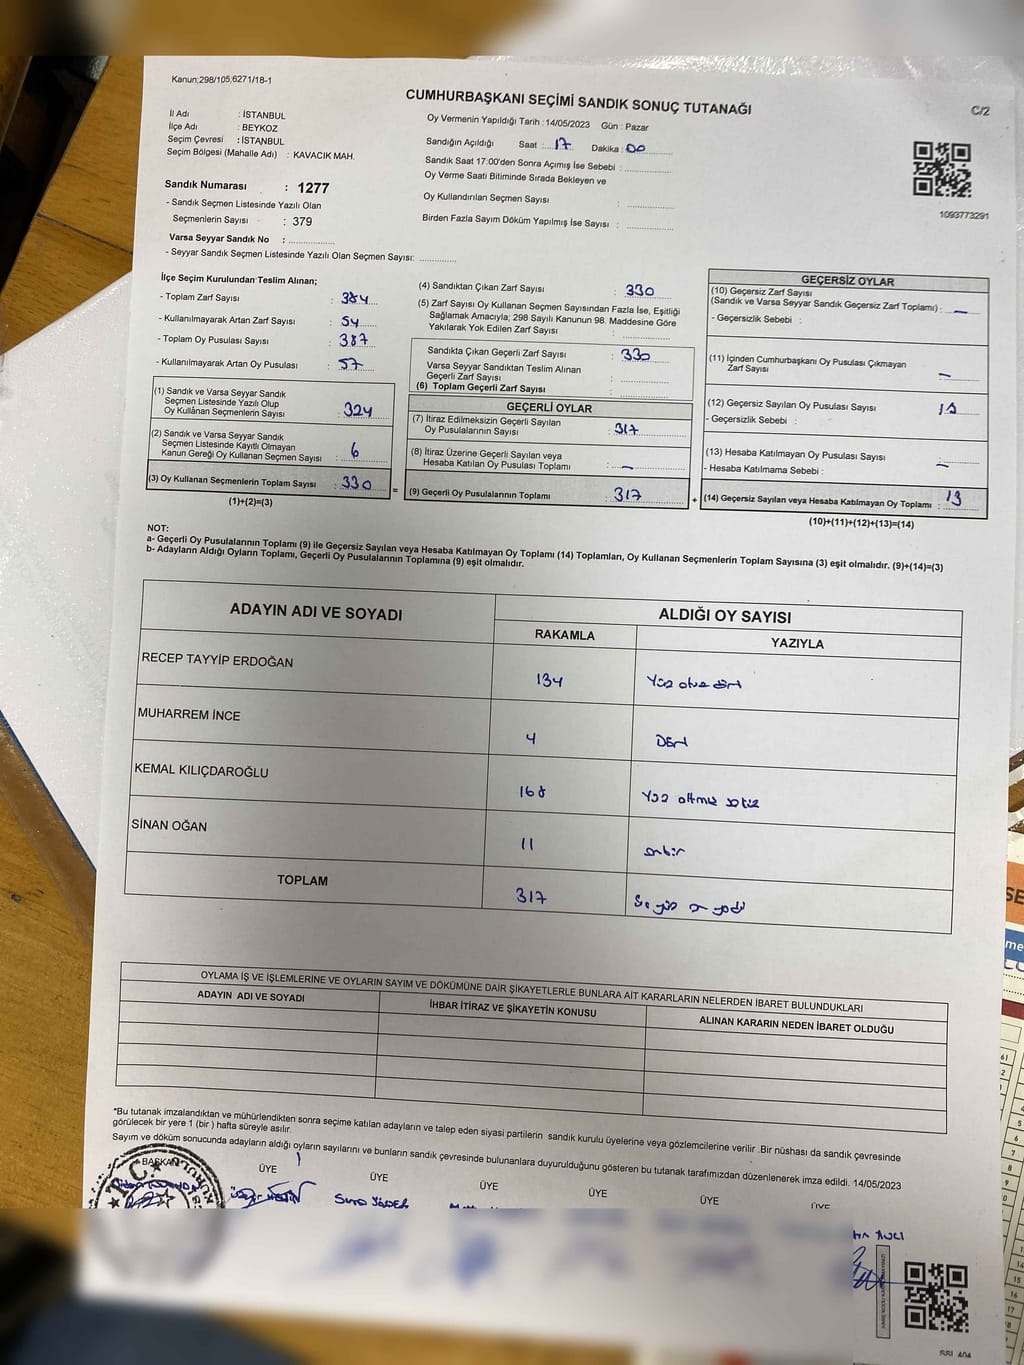 Kanun;298/105,6271/18-1
CUMHURBAŞKANI SEÇİMİ SANDIK SONUÇ TUTANAĞI
C/2
İl Adı : İSTANBUL
İlçe Adı : BEYKOZ
Seçim Çevresi : İSTANBUL
Seçim Bölgesi (Mahalle Adı) : KAVACIK MAH.
Sandık Numarası : 1277
- Sandık Seçmen Listesinde Yazılı Olan
Seçmenlerin Sayısı : 379
Varsa Seyyar Sandık No : ................
- Seyyar Sandık Seçmen Listesinde Yazılı Olan Seçmen Sayısı: ............
Oy Vermenin Yapıldığı Tarih : 14/05/2023 Gün : Pazar
Sandığın Açıldığı Saat : 17 Dakika : 00
Sandık Saat 17:00'den Sonra Açımış İse Sebebi : ...............
Oy Verme Saati Bitiminde Sırada Bekleyen ve
Oy Kullandırılan Seçmen Sayısı : ...............
Birden Fazla Sayım Döküm Yapılmış İse Sayısı : ...............
1093773291
İlçe Seçim Kurulundan Teslim Alınan;
- Toplam Zarf Sayısı : 384
- Kullanılmayarak Artan Zarf Sayısı : 54
- Toplam Oy Pusulası Sayısı : 387
- Kullanılmayarak Artan Oy Pusulası : 57
(1) Sandık ve Varsa Seyyar Sandık
Seçmen Listesinde Yazılı Olup
Oy Kullanan Seçmenlerin Sayısı : 324
(2) Sandık ve Varsa Seyyar Sandık
Seçmen Listesinde Kayıtlı Olmayan
Kanun Gereği Oy Kullanan Seçmen Sayısı : 6
(3) Oy Kullanan Seçmenlerin Toplam Sayısı : 330
(1)+(2)=(3)
=
(4) Sandıktan Çıkan Zarf Sayısı : 330
(5) Zarf Sayısı Oy Kullanan Seçmen Sayısından Fazla İse, Eşitliği
Sağlamak Amacıyla; 298 Sayılı Kanunun 98. Maddesine Göre
Yakılarak Yok Edilen Zarf Sayısı : ...............
Sandıkta Çıkan Geçerli Zarf Sayısı : 330
Varsa Seyyar Sandıktan Teslim Alınan
Geçerli Zarf Sayısı : ...............
(6) Toplam Geçerli Zarf Sayısı : ...............
GEÇERLİ OYLAR
(7) İtiraz Edilmeksizin Geçerli Sayılan
Oy Pusulalarının Sayısı : 317
(8) İtiraz Üzerine Geçerli Sayılan veya
Hesaba Katılan Oy Pusulası Toplamı : –
(9) Geçerli Oy Pusulalarının Toplamı : 317
+
GEÇERSİZ OYLAR
(10) Geçersiz Zarf Sayısı
(Sandık ve Varsa Seyyar Sandık Geçersiz Zarf Toplamı) : –
- Geçersizlik Sebebi :
(11) İçinden Cumhurbaşkanı Oy Pusulası Çıkmayan
Zarf Sayısı : –
(12) Geçersiz Sayılan Oy Pusulası Sayısı : 13
- Geçersizlik Sebebi :
(13) Hesaba Katılmayan Oy Pusulası Sayısı : –
- Hesaba Katılmama Sebebi :
(14) Geçersiz Sayılan veya Hesaba Katılmayan Oy Toplamı : 13
(10)+(11)+(12)+(13)=(14)
NOT:
a- Geçerli Oy Pusulalarının Toplamı (9) ile Geçersiz Sayılan veya Hesaba Katılmayan Oy Toplamı (14) Toplamları, Oy Kullanan Seçmenlerin Toplam Sayısına (3) eşit olmalıdır. (9)+(14)=(3)
b- Adayların Aldığı Oyların Toplamı, Geçerli Oy Pusulalarının Toplamına (9) eşit olmalıdır.
ADAYIN ADI VE SOYADI ALDIĞI OY SAYISI
RAKAMLA YAZIYLA
RECEP TAYYİP ERDOĞAN 134 Yüz otuz dört
MUHARREM İNCE 4 Dört
KEMAL KILIÇDAROĞLU 168 Yüz altmış sekiz
SİNAN OĞAN 11 onbir
TOPLAM 317 Üç yüz on yedi
OYLAMA İŞ VE İŞLEMLERİNE VE OYLARIN SAYIM VE DÖKÜMÜNE DAİR ŞİKAYETLERLE BUNLARA AİT KARARLARIN NELERDEN İBARET BULUNDUKLARI
ADAYIN ADI VE SOYADI İHBAR İTİRAZ VE ŞİKAYETİN KONUSU ALINAN KARARIN NEDEN İBARET OLDUĞU
*Bu tutanak imzalandıktan ve mühürlendikten sonra seçime katılan adayların ve talep eden siyasi partilerin sandık kurulu üyelerine veya gözlemcilerine verilir .Bir nüshası da sandık çevresinde
görülecek bir yere 1 (bir ) hafta süreyle asılır.
Sayım ve döküm sonucunda adayların aldığı oyların sayılarını ve bunların sandık çevresinde bulunanlara duyurulduğunu gösteren bu tutanak tarafımızdan düzenlenerek imza edildi. 14/05/2023
BAŞKAN ÜYE ÜYE ÜYE ÜYE ÜYE ÜYE
T.C.